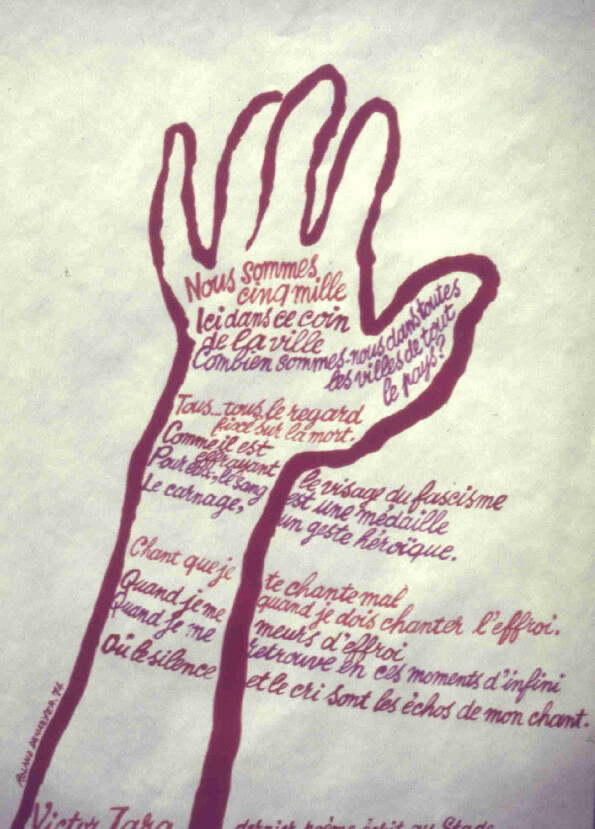 Nous sommes
cinq mille
Ici dans ce coin
de la ville
Combien sommes-nous dans toutes
les villes de tout
le pays?
Tous... tous, le regard
fixé sur la mort.
Comme il est
effrayant le visage du fascisme
Pour eux, le sang est une médaille
Le carnage, un geste héroïque.
Chant que je te chante mal
Quand je me quand je dois chanter l'effroi.
Quand je me meurs d'effroi
retrouve en ces moments d'infini
Où le silence et le cri sont les échos de mon chant.
Victor Jara dernier poème écrit au Stade